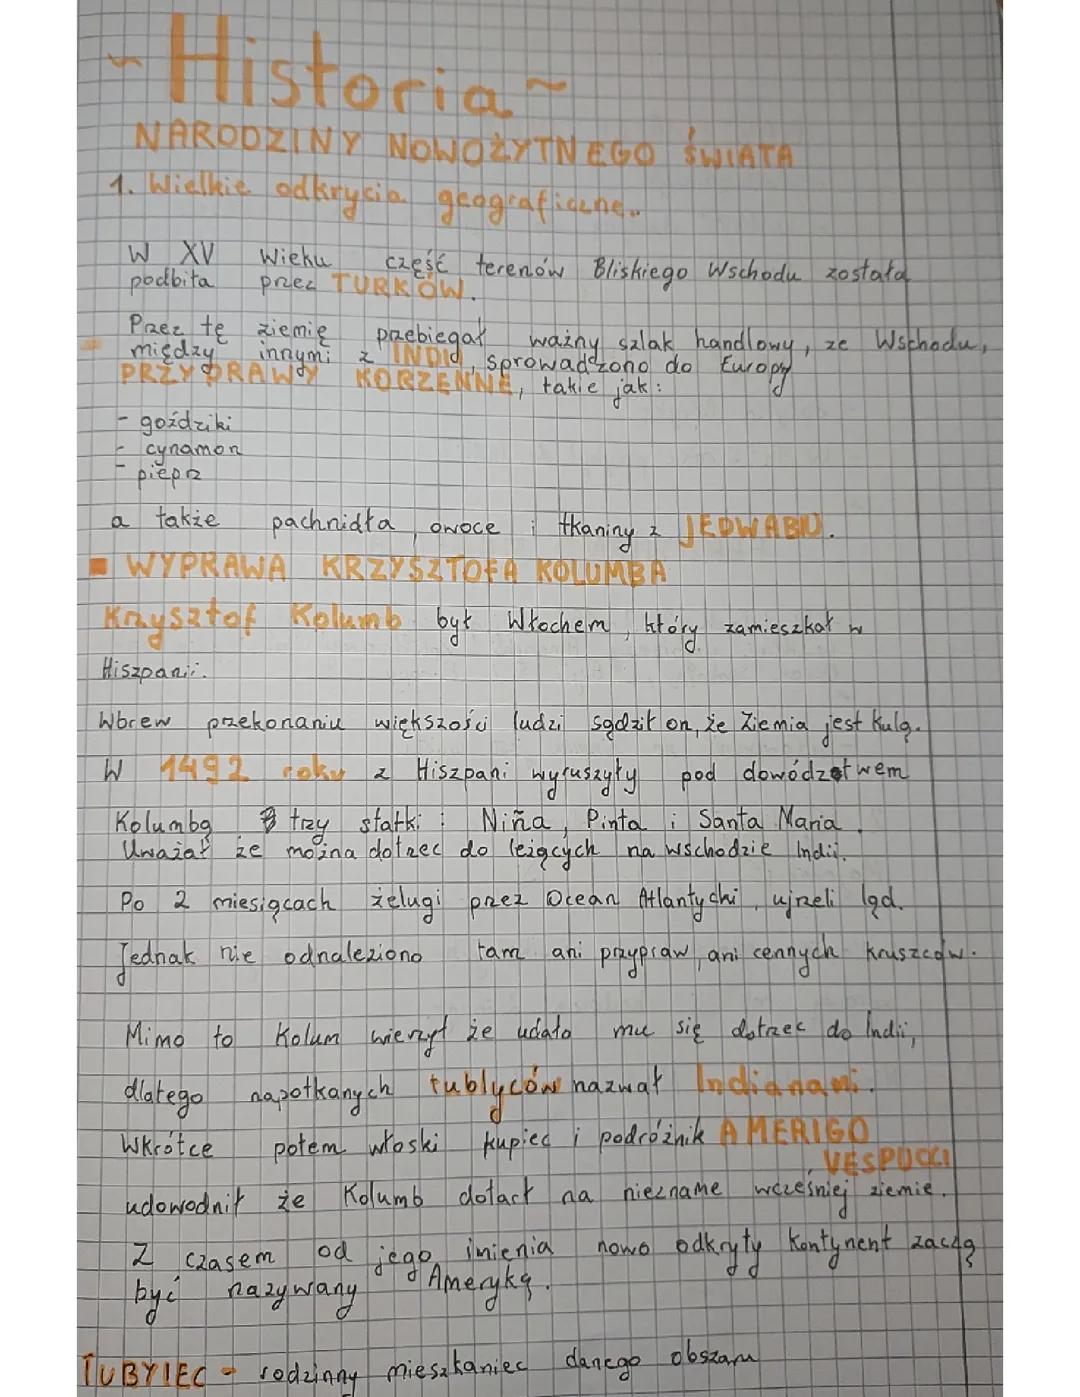 ~ Historia ~
NARODZINY NOWOŻYTNEGO ŚWIATA
1. Wielkie odkrycia geograficzne..
W XV Wieku część terenów Bliskiego Wschodu została
podbita przez TURKÓW.
Przez tę ziemię przebiegał ważny szlak handlowy, ze Wschodu,
między innymi z INDII, sprowadzono do Europy
PRZYPRAWY KORZENNE, takie jak:
- goździki
- cynamon
- pieprz
a także pachnidła, owoce i tkaniny z JEDWABIU.
WYPRAWA KRZYSZTOFA KOLUMBA
Krzysztof Kolumb był Włochem, który zamieszkał w
Hiszpanii.
Wbrew przekonaniu większości ludzi sądził on, że Ziemia jest kulą.
W 1492 roku z Hiszpani wyruszyły pod dowództwem
Kolumba trzy statki: Niña, Pinta i Santa Maria.
Uważał że można dotrzec do leżących na wschodzie Indii.
Po 2 miesiącach żelugi przez Ocean Atlantycki, ujrzeli ląd.
Jednak nie odnaleziono tam ani przypraw, ani cennych kruszców.
Mimo to Kolum wierzył że udało mu się dotrzec do Indii,
dlatego napotkanych tublyców nazwał Indianami.
Wkrótce potem włoski kupiec i podróżnik AMERIGO
VESPUCCI
udowodnił że Kolumb dotarł na niezname wcześniej ziemie.
Z czasem od jego imienia nowo odkryty kontynent zaczą
być nazywany Ameryką.
TUBYLEC - rodzinny mieszkaniec danego obszaru